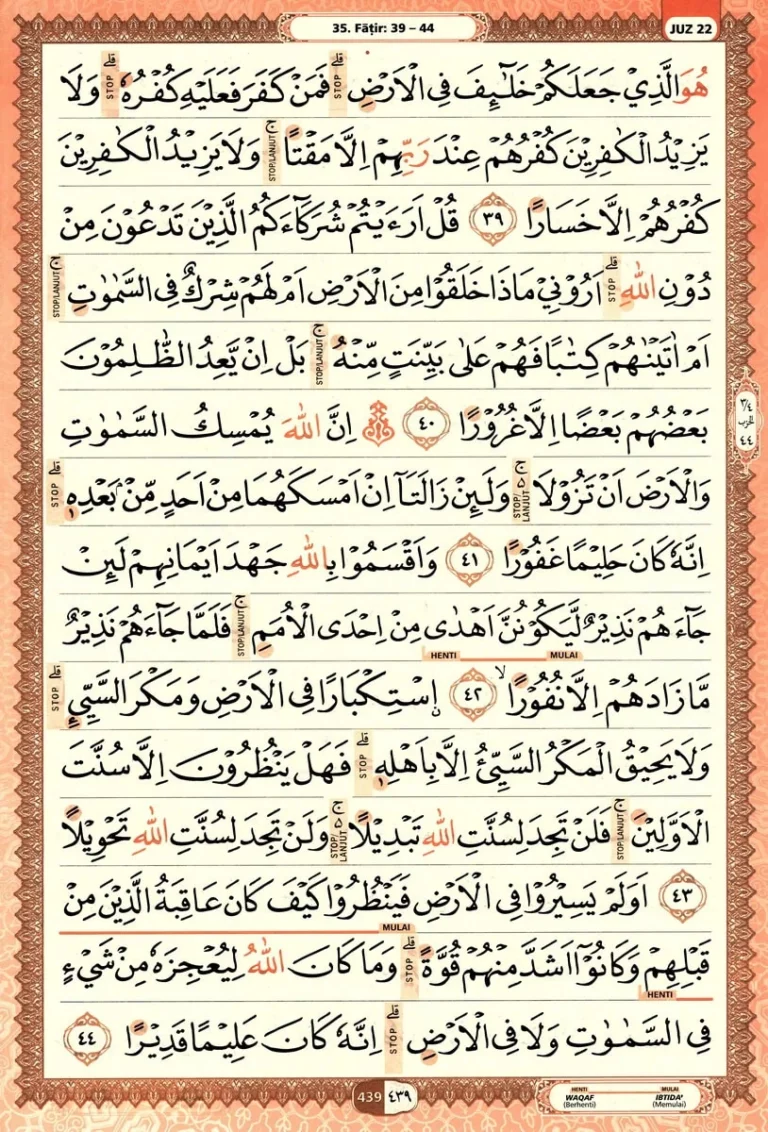 35. Fāṭir: 39 – 44
JUZ 22
هُوَ الَّذِيْ جَعَلَكُمْ خَلٰۤىِٕفَ فِى الْاَرْضِۗ فَمَنْ كَفَرَ فَعَلَيْهِ كُفْرُهٗۗ وَلَا
يَزِيْدُ الْكٰفِرِيْنَ كُفْرُهُمْ عِنْدَ رَبِّهِمْ اِلَّا مَقْتًاۚ وَلَا يَزِيْدُ الْكٰفِرِيْنَ
كُفْرُهُمْ اِلَّا خَسَارًا ٣٩ قُلْ اَرَءَيْتُمْ شُرَكَاۤءَكُمُ الَّذِيْنَ تَدْعُوْنَ مِنْ
دُوْنِ اللّٰهِۗ اَرُوْنِيْ مَاذَا خَلَقُوْا مِنَ الْاَرْضِ اَمْ لَهُمْ شِرْكٌ فِى السَّمٰوٰتِۚ
اَمْ اٰتَيْنٰهُمْ كِتٰبًا فَهُمْ عَلٰى بَيِّنَتٍ مِّنْهُۚ بَلْ اِنْ يَّعِدُ الظّٰلِمُوْنَ
بَعْضُهُمْ بَعْضًا اِلَّا غُرُوْرًا ٤٠ ۞ اِنَّ اللّٰهَ يُمْسِكُ السَّمٰوٰتِ
وَالْاَرْضَ اَنْ تَزُوْلَا ەۚ وَلَىِٕنْ زَالَتَآ اِنْ اَمْسَكَهُمَا مِنْ اَحَدٍ مِّنْۢ بَعْدِهٖۗ
اِنَّهٗ كَانَ حَلِيْمًا غَفُوْرًا ٤١ وَاَقْسَمُوْا بِاللّٰهِ جَهْدَ اَيْمَانِهِمْ لَىِٕنْ
جَاۤءَهُمْ نَذِيْرٌ لَّيَكُوْنُنَّ اَهْدٰى مِنْ اِحْدَى الْاُمَمِۚ فَلَمَّا جَاۤءَهُمْ نَذِيْرٌ
HENTI MULAI
مَّا زَادَهُمْ اِلَّا نُفُوْرًاۙ ٤٢ ۨاسْتِكْبَارًا فِى الْاَرْضِ وَمَكْرَ السَّيِّئِۗ
وَلَا يَحِيْقُ الْمَكْرُ السَّيِّئُ اِلَّا بِاَهْلِهٖۗ فَهَلْ يَنْظُرُوْنَ اِلَّا سُنَّتَ
الْاَوَّلِيْنَۚ فَلَنْ تَجِدَ لِسُنَّتِ اللّٰهِ تَبْدِيْلًا ەۚ وَلَنْ تَجِدَ لِسُنَّتِ اللّٰهِ تَحْوِيْلًا
٤٣ اَوَلَمْ يَسِيْرُوْا فِى الْاَرْضِ فَيَنْظُرُوْا كَيْفَ كَانَ عَاقِبَةُ الَّذِيْنَ مِنْ
MULAI
قَبْلِهِمْ وَكَانُوْٓا اَشَدَّ مِنْهُمْ قُوَّةًۗ وَمَا كَانَ اللّٰهُ لِيُعْجِزَهٗ مِنْ شَيْءٍ
HENTI
فِى السَّمٰوٰتِ وَلَا فِى الْاَرْضِۗ اِنَّهٗ كَانَ عَلِيْمًا قَدِيْرًا ٤٤
٣/٤
الحزب
٤٤
439 ٤٣٩
HENTI MULAI
WAQAF IBTIDA'
(Berhenti) (Memulai)